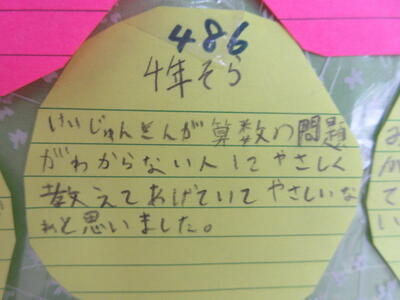 486
4年そら
けいじゅんさんが算数の問題
がわからない人にやさしく
教えてあげていてやさしいな
ぁと思いました。